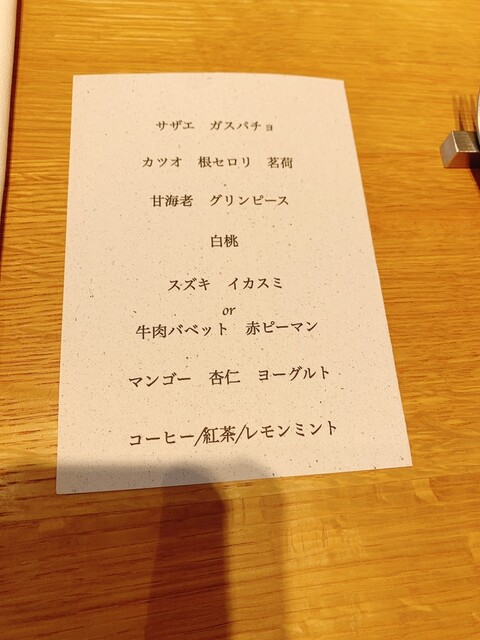 サザエ　ガスパチョ
カツオ　根セロリ　茗荷
甘海老　グリンピース
白桃
スズキ　イカスミ
or
牛肉バベット　赤ピーマン
マンゴー　杏仁　ヨーグルト
コーヒー/紅茶/レモンミント